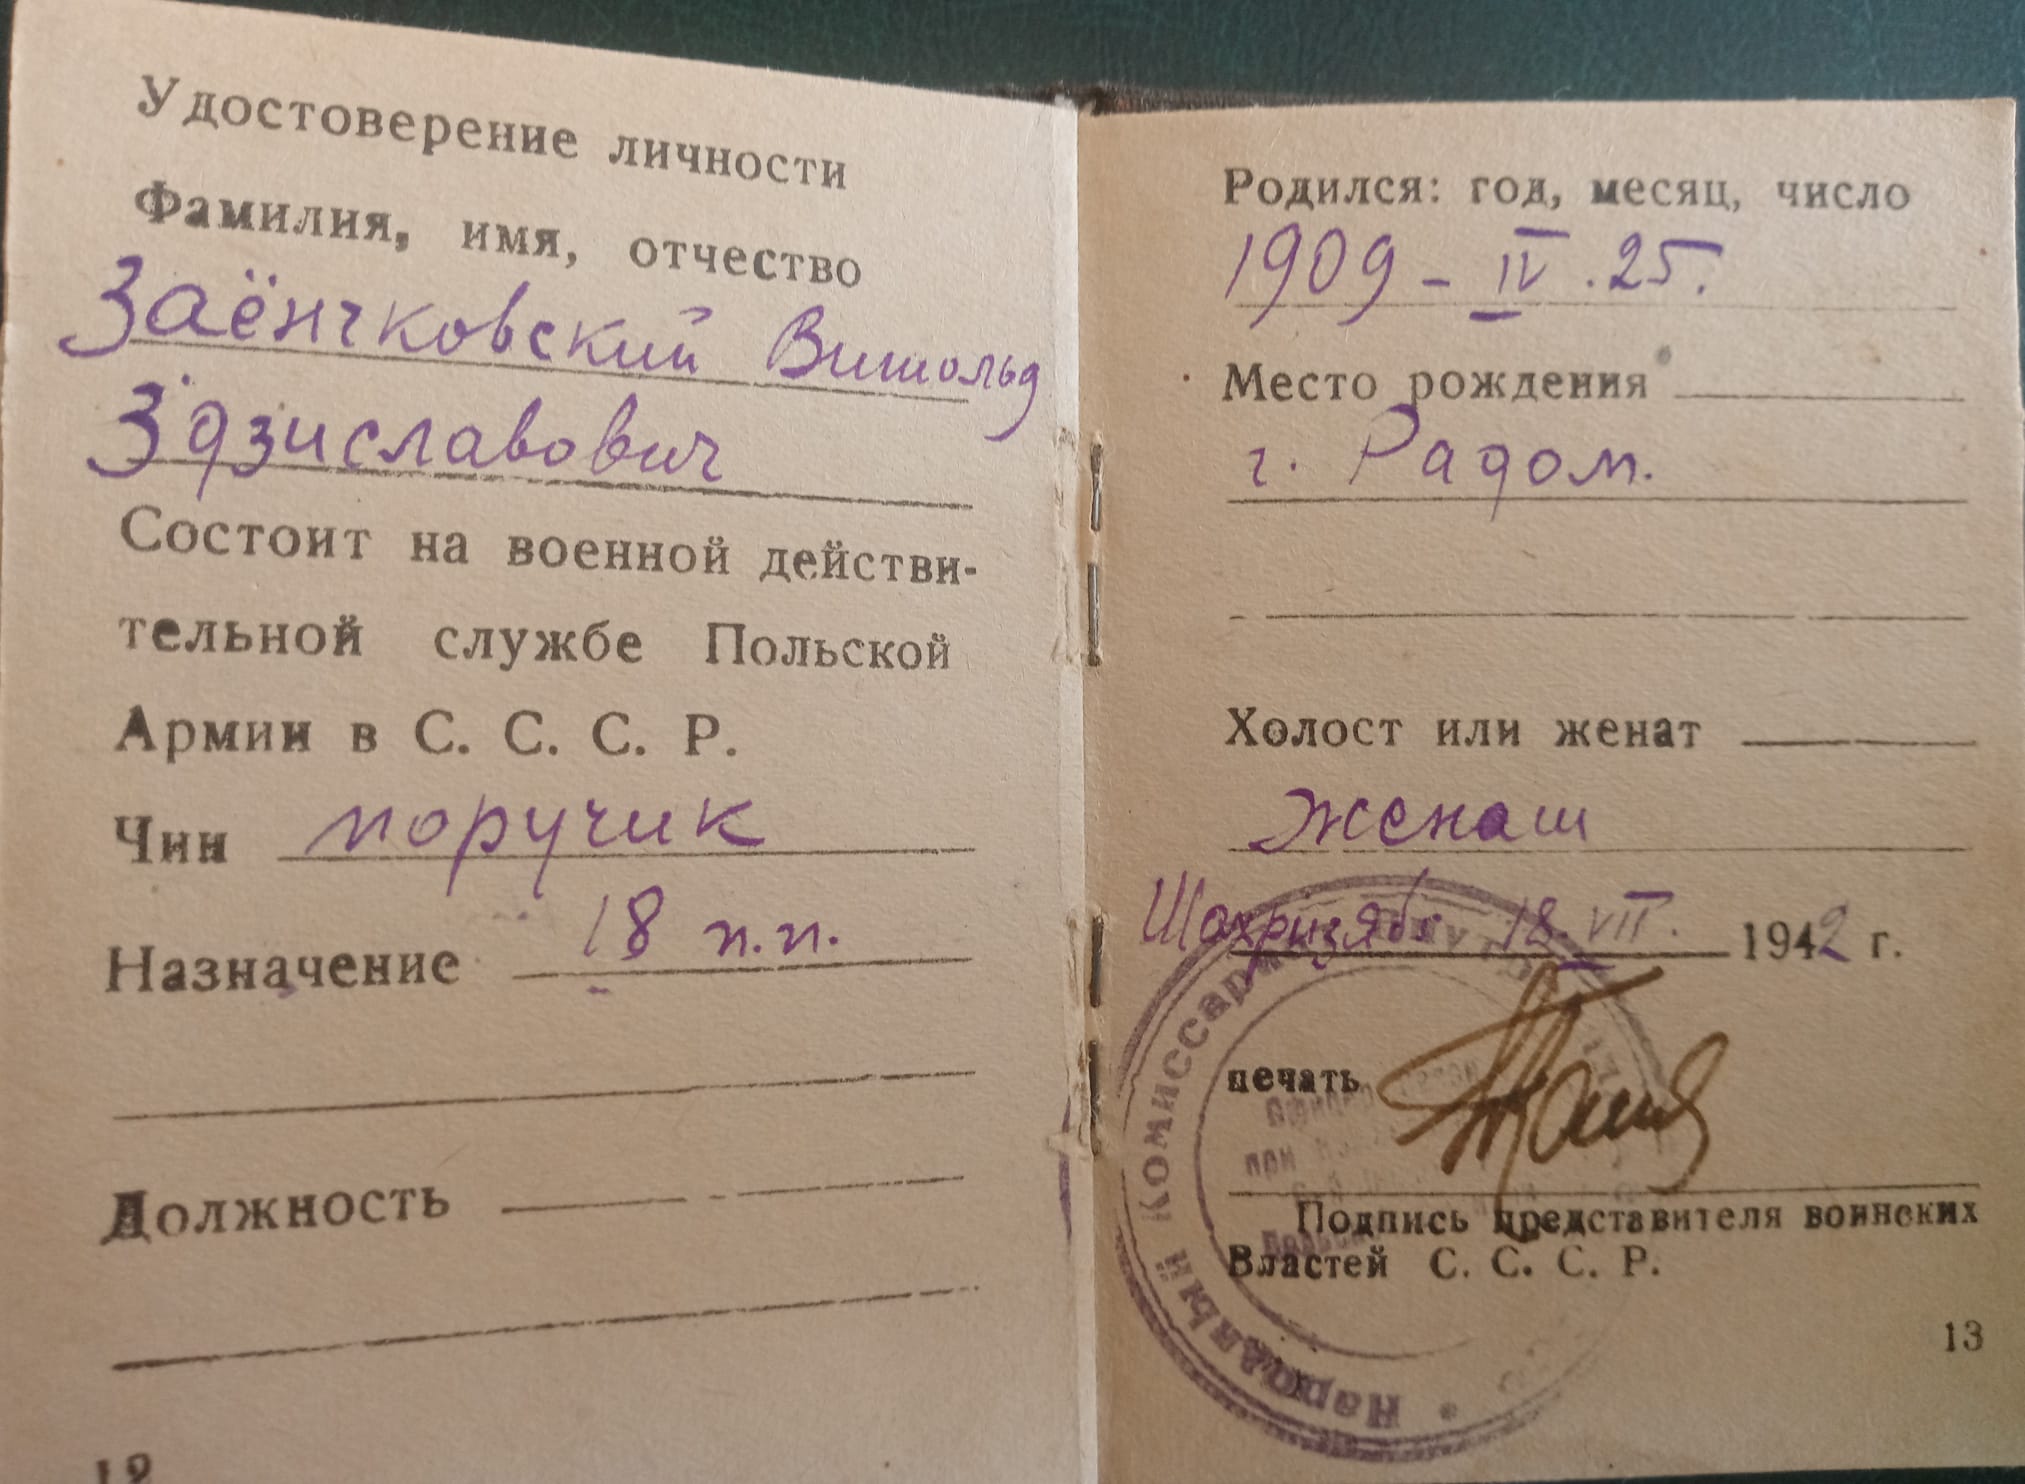 Удостоверение личности
Фамилия, имя, отчество
Заёнчковский Витольд
Здзиславович
Состоит на военной действи-
тельной службе Польской
Армии в С. С. С. Р.
Чин поручик
Назначение 18 п.п.
Должность
12
Родился: год, месяц, число
1909 - IV. 25.
Место рождения
г. Радом.
Холост или женат
женат
Шахризябс 18. VII. 1942 г.
печать
Народный Комиссариат
при
Подпись представителя воинских
Властей С. С. С. Р.
13